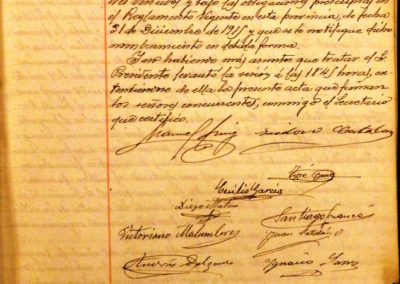 tres vencidos y bajo las obligaciones prescriptas en
el Reglamento vigente en esta provincia, de fecha
31 de Diciembre de 1915 y que se le notifique dicho
nombramiento en debida forma.
Y no habiendo más asuntos que tratar el Sr.
Presidente levantó la sesión á las 18'45 horas, ex-
tendiendose de ella la presente acta que firman
los señores concurrentes, conmigo el Secretario
que certifico.
Isidoro Catalan
José
Emilio García
Diego Matas
Santiago Francés
Victoriano Malumbres
Juan Catalán
Andrés Delgado
Ignacio Sanz